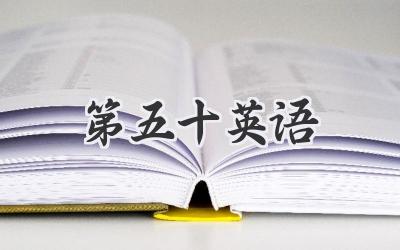 第五十英语